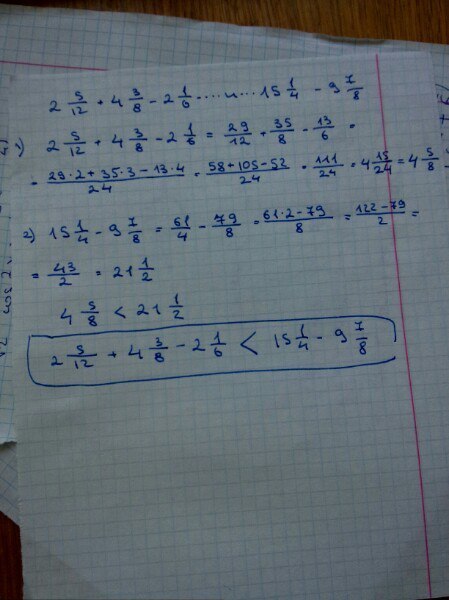 2 5/12 + 4 3/8 - 2 1/6 ..... и ... 15 1/4 - 9 7/8
1) 2 5/12 + 4 3/8 - 2 1/6 = 29/12 + 35/8 - 13/6 =
= 29·2 + 35·3 - 13·4/24 = 58+105-52/24 = 111/24 = 4 15/24 = 4 5/8
2) 15 1/4 - 9 7/8 = 61/4 - 79/8 = 61·2-79/8 = 122-79/2 =
= 43/2 = 21 1/2
4 5/8 < 21 1/2
2 5/12 + 4 3/8 - 2 1/6 < 15 1/4 - 9 7/8